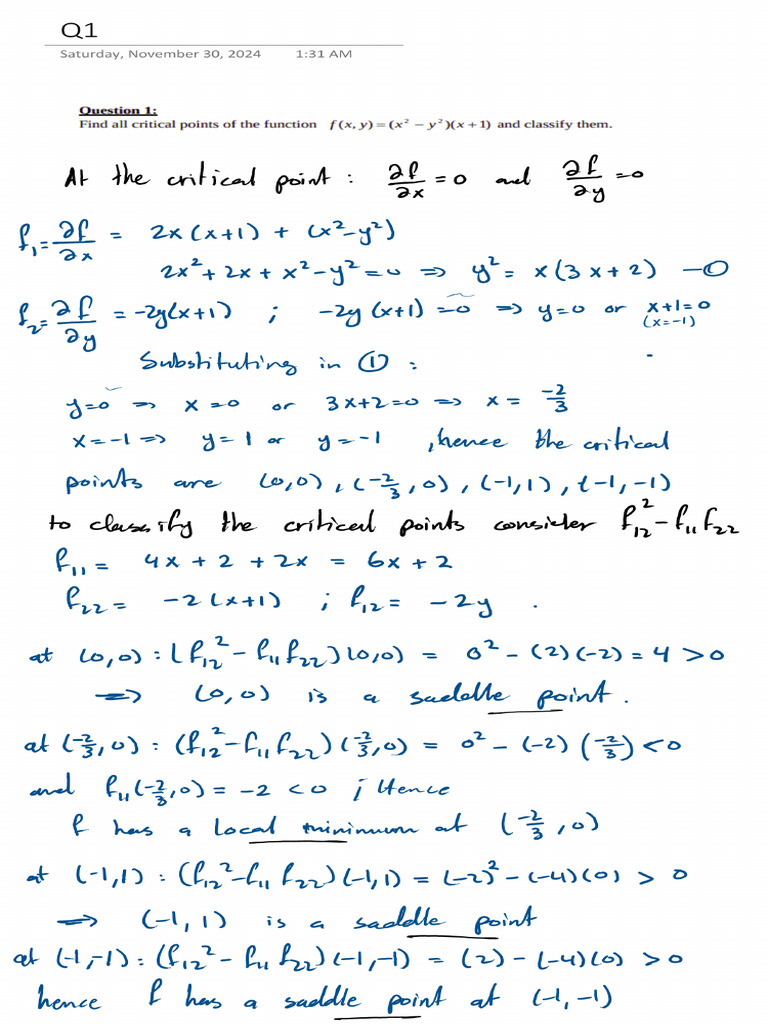 Q1
Saturday, November 30, 2024 1:31 AM
Question 1:
Find all critical points of the function f(x, y)=(x² − y²)(x+1) and classify them.
At the critical point : ∂f/∂x = 0 and ∂f/∂y = 0
f₁ = ∂f/∂x = 2x(x+1) + (x²-y²)
2x² + 2x + x² - y² = 0 ⇒ y² = x(3x+2) —①
f₂ = ∂f/∂y = -2y(x+1) ; -2y(x+1) = 0 ⇒ y=0 or x+1=0
(x=-1)
Substituting in ① :
y=0 ⇒ x=0 or 3x+2=0 ⇒ x = -2/3
x=-1 ⇒ y=1 or y=-1 , hence the critical
points are (0,0), (-2/3, 0), (-1,1), (-1,-1)
to classify the critical points consider f₁₂² - f₁₁f₂₂
f₁₁ = 4x + 2 + 2x = 6x + 2
f₂₂ = -2(x+1) ; f₁₂ = -2y .
at (0,0) : (f₁₂² - f₁₁f₂₂)(0,0) = 0² - (2)(-2) = 4 > 0
⇒ (0,0) is a saddle point .
at (-2/3, 0) : (f₁₂² - f₁₁f₂₂)(-2/3, 0) = 0² - (-2)(-2/3) < 0
and f₁₁(-2/3, 0) = -2 < 0 ; Hence
f has a local minimum at (-2/3, 0)
at (-1,1) : (f₁₂² - f₁₁ f₂₂)(-1,1) = (-2)² - (-4)(0) > 0
⇒ (-1,1) is a saddle point
at (-1,-1) : (f₁₂² - f₁₁ f₂₂)(-1,-1) = (2) - (-4)(0) > 0
hence f has a saddle point at (-1,-1)